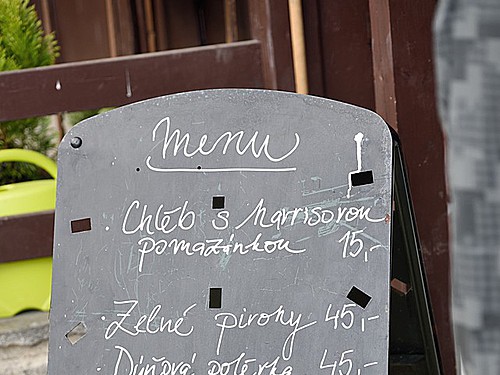 Menu
· Chléb s harrisovou
pomazánkou 15,-
· Zelné pirohy 45,-
· Dýňová polévka 45,-